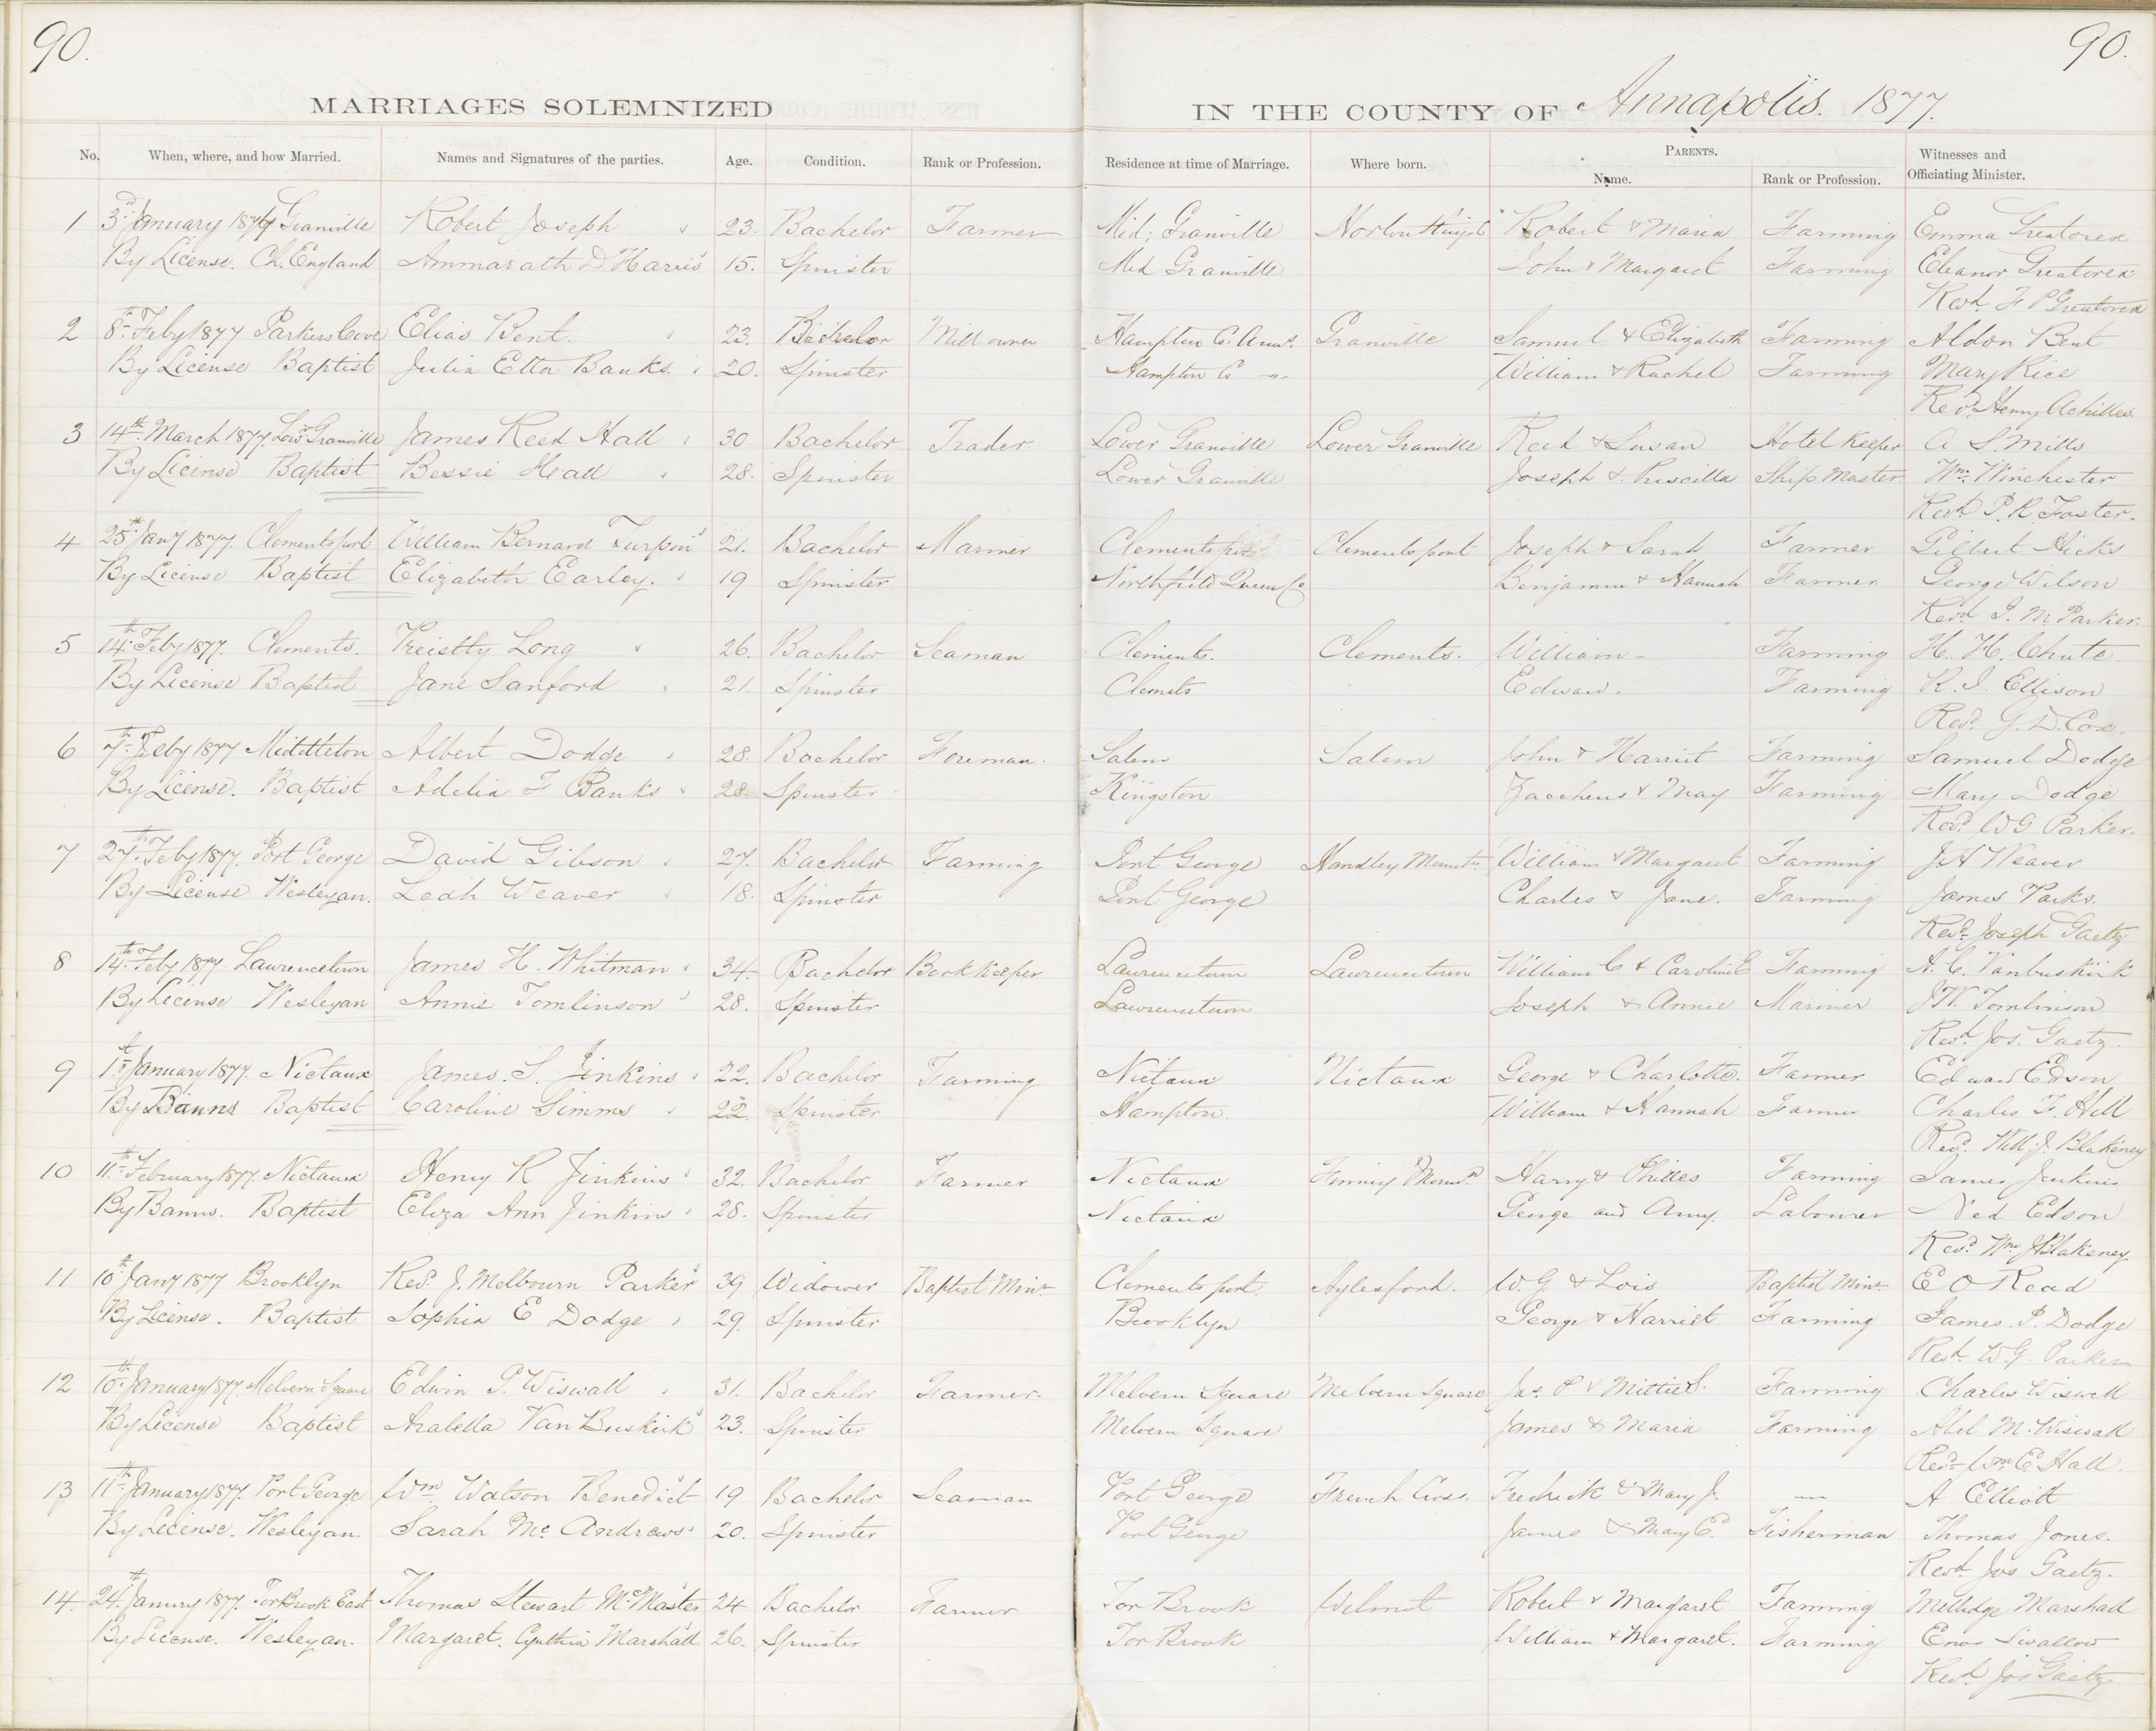 90.
90.
MARRIAGES SOLEMNIZED IN THE COUNTY OF Annapolis. 1877.
No. When, where, and how Married. Names and Signatures of the parties. Age. Condition. Rank or Profession. Residence at time of Marriage. Where born. PARENTS. Name. Rank or Profession. Witnesses and Officiating Minister.
1 3d January 1877 Granville Robert Joseph 23. Bachelor Farmer Mid; Granville Robert & Maria Farming Emma Greatorex
By License. Ch. England Ammarath D Harris 15. Spinster Mid Granville John & Margaret Farming Eleanor Greatorex
Revd. F P Greatorex
2 8th Feby 1877 Parkers Cove Elias Bent. 23. Bachelor Mill owner Hampton Co. Anns. Granville Samuel & Elizabeth Farming Aldon Bent
By License Baptist Julia Etta Banks. 20. Spinster Hampton Co -"- William & Rachel Farming Mary Rice
Revd. Henry Achilles.
3 14th March 1877. Lowr Granville James Reed Hall 30 Bachelor Trader. Lower Granville Lower Granville Reed & Susan Hotel Keeper A S. Mills
By License Baptist Bessie Head 28. Spinster Lower Granville Joseph & Priscilla Ship Master Wm. Winchester
Revd. P. R. Foster.
4 25th Jany 1877. Clementsport William Bernard Turpin 21. Bachelor Mariner Clementsport Clementsport Joseph & Sarah Farmer Gilbert Hicks
By License Baptist Elizabeth Earley. 19 Spinster Northfield Queens Co Benjamin & Hannah Farmer George Wilson
Revd J. M. Parker.
5 14th Feby 1877. Clements. Long 26. Bachelor Seaman Clements. Clements. William - Farming H. H. Chute
By License Baptist Jane Sanford 21. Spinster Clements Edward. Farming R. J. Ellison
Revd. G. D. Cox.
6 7th Feby 1877 Middleton Albert Dodge 28. Bachelor Foreman. Salem Salem John & Harriet Farming Samuel Dodge
By License. Baptist Adelia F Banks 28. Spinster Kingston Zaccheus & May Farming Mary Dodge
Revd. W G Parker.
7 27th Feby 1877. Port George David Gibson 27. Bachelor Farming Port George Handley Mount. William & Margaret Farming J. H Weaver
By License Wesleyan. Leah Weaver 18. Spinster Port George Charles & Jane. Farming James Parks.
Revd. Joseph Gaetz
8 14th Feby 1877 Lawrencetown James H. Whitman 34. Bachelor Book Keeper Lawrencetown Lawrencetown William C & Caroline E Farming A. C. Vanbuskirk
By License Wesleyan Annie Tomlinson 28. Spinster Lawrencetown Joseph & Annie Mariner J. W. Tomlinson
Revd. Jos. Gaetz.
9 1st January 1877. Nictaux James. S. Jinkins 22. Bachelor Farming Nictaux Nictaux George & Charlotte. Farmer Edward Edson
By Banns Baptist Caroline Simms 22. Spinster Hampton. William & Hannah Farmer Charles F. Hill
Revd. Will. J. Blakeney
10 11th February 1877. Nictaux Henry R Jinkins 32. Bachelor Farmer Nictaux Harry & Farming James Jenkins
By Banns. Baptist Eliza Ann Jinkins 28. Spinster Nictaux George and Amy. Labourer Ned Edson
Revd. Wm J Blakeney
11 10th Jany 1877 Brooklyn Revd. J. Melbourn Parker 39 Widower Baptist Minr. Clementsport. Aylesford. W. G. & Lois Baptist Minr. E O Read
By License. Baptist Sophia E Dodge 29. Spinster Brooklyn George & Harriet Farming James. P. Dodge
Revd. W. G. Parker
12 10th January 1877. Melvern Square Edwin P. Wiswall 31. Bachelor Farmer. Melvern Square Melvern Square Jas. P & Mittie S. Farming Charles Wiswall
By License Baptist Arabella Van Buskirk 23. Spinster Melvern Square James & Maria Farming Abel M. Wiswall
Revd. Wm E Hall.
13 11th January 1877. Port George Wm. Watson Benedict 19 Bachelor Seaman Port George French Cross. Fredrick & Mary J. — A Elliott
By License. Wesleyan. Sarah Mc. Andrews 20. Spinster Port George James & Mary E. Fisherman Thomas Jones.
Revd. Jos Gaetz.
14. 24th January 1877. Tor Brook East Thomas Stewart McMaster 24 Bachelor Farmer Tor Brook Wilmot Robert & Margaret Farming Milledge Marshall
By License. Wesleyan. Margaret. Cynthia Marshall 26. Spinster Tor Brook William & Margaret. Farming Enos Swallow
Revd. Jos Gaetz